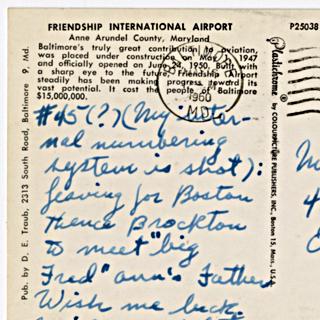 FRIENDSHIP INTERNATIONAL AIRPORT
Anne Arundel County, Maryland
Baltimore's truly great contribution to aviation,
was placed under construction on May 1947
and officially opened on June 24, 1950. Built with
a sharp eye to the future, Friendship Airport
steadily has been making progress toward its
vast potential. It cost the people of Baltimore
$15,000,000.
P25038
1960
MD.
#45(?)(My inter-
nal numbering
system is shot):
leaving for Boston
thence Brockton
to meet "big
Fred" Ann's Father
Wish me luck.
Pub. by D. E. Traub, 2313 South Road, Baltimore 9, Md.
Plastichrome ® by COLOURPICTURE PUBLISHERS, INC., Boston 15, Mass., U.S.A.